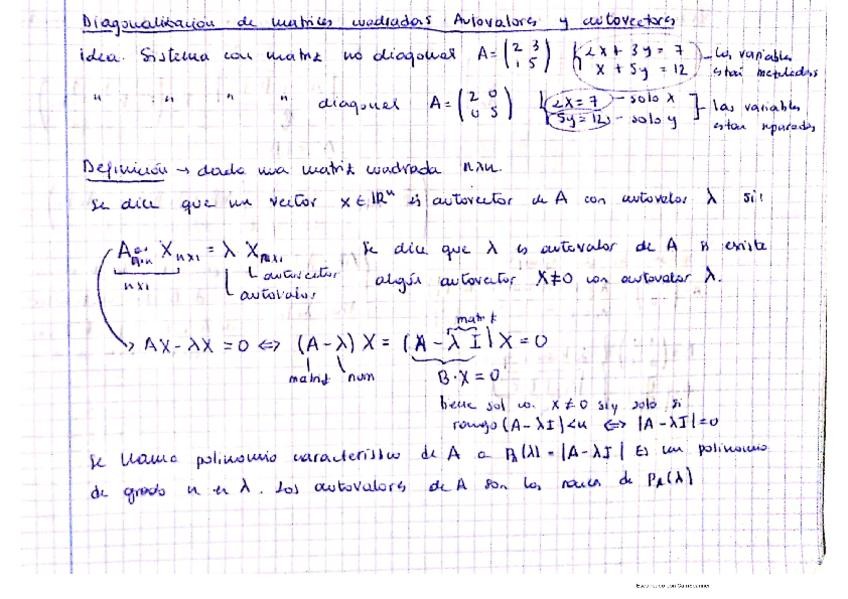 Diagonalización de matrices cuadradas Autovalores y autovectores
idea. Sistema con matriz no diagonal A = (2 3 / 1 5) { 2x + 3y = 7 / x + 5y = 12 - las variables están mezcladas
" " " " diagonal A = (2 0 / 0 5) { 2x = 7 - solo x / 5y = 12 - solo y ] las variables están separadas
Definición → dada una matriz cuadrada nxn.
Se dice que un vector x ∈ ℝⁿ es autovector de A con autovalor λ si:
A nxn X nx1 = λ X nx1 Se dice que λ es autovalor de A si existe
nx1 autovector autovalor algún autovector X≠0 con autovalor λ.
matriz
AX - λX = 0 ⇔ (A - λ) X = (A - λ I) X = 0
matriz num B · X = 0
tiene sol X ≠ 0 si y solo si
rango (A - λI) < n ⇔ |A - λI| = 0
Se llama polinomio característico de A a P_A(λ) = |A - λI| Es un polinomio
de grado n en λ. Los autovalores de A son las raíces de P_A(λ)
Escaneado con CamScanner